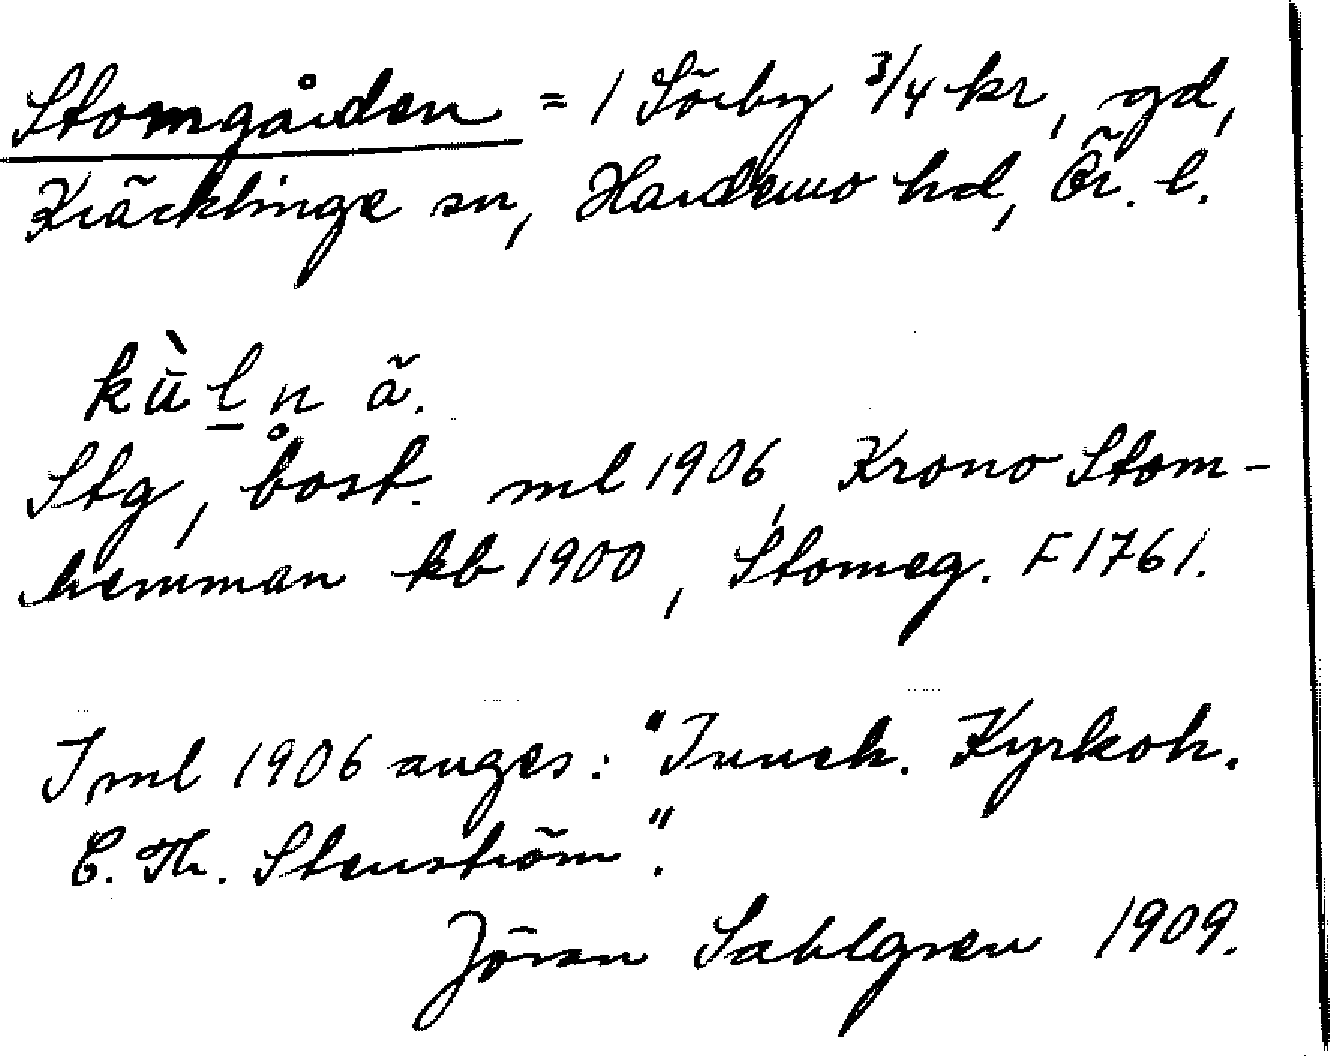 Stomgården = 1 Sörby 3/4 kr, gd,
Kräcklinge sn, Hardemo hd, Ör. l.
kǜl̲n̥ ã.
Stg, bost. ml 1906, Krono Stom-
hemman kb 1900, Stomeg. F 1761.
I ml 1906 anges: "Inneh. Kyrkoh.
C. Th. Stenström".
Jöran Sahlgren 1909.